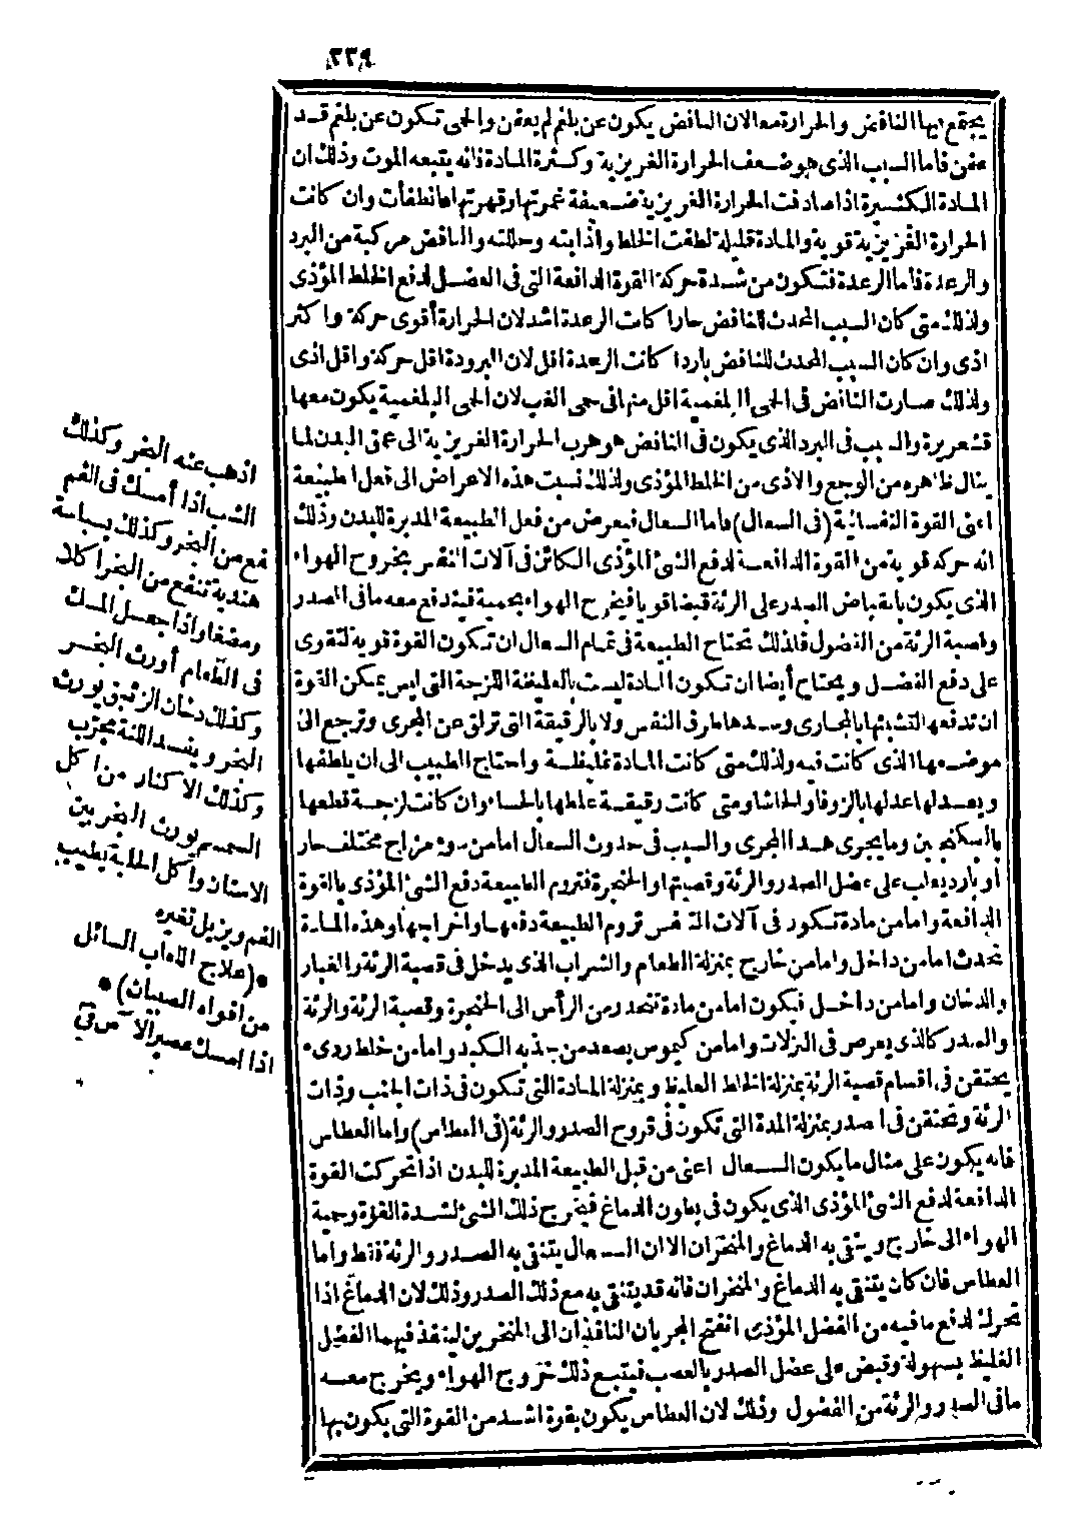 ٢٢٩
يجتمع فيها النافض والحرارة معا لان النافض يكون عن بلغم لم يعفن والحمى تكون عن بلغم قد
عفن فاما السبب الذى هو ضعف الحرارة الغريزية وكثرة المادة فانه يتبعه الموت وذلك ان
المادة الكثيرة اذا صادفت الحرارة الغريزية ضعيفة غمرتها وقهرتها فانطفأت وان كانت
الحرارة الغريزية قوية والمادة قليلة لطفت الخلط واذابته وحللته والنافض مركبة من البرد
والرعدة فاما الرعدة فتكون من شدة حركة القوة الدافعة التى فى العضل لدفع الخلط المؤذى
ولذلك متى كان السبب المحدث للنافض حارا كانت الرعدة اشد لان الحرارة أقوى حركة واكثر
اذى وان كان السبب المحدث للنافض باردا كانت الرعدة اقل لان البرودة اقل حركة واقل اذى
ولذلك صارت النافض فى الحمى البلغمية اقل منها فى حمى الغب لان الحمى البلغمية يكون معها
قشعريرة والسبب فى البرد الذى يكون فى النافض هو هرب الحرارة الغريزية الى عمق البدن لما
ينال ظاهره من الوجع والاذى من الخلط المؤذى ولذلك نسبت هذه الاعراض الى فعل الطبيعة
اعنى القوة النفسانية (فى السعال) فاما السعال فيعرض من فعل الطبيعة المدبرة للبدن وذلك
انه حركة قوية من القوة الدافعة لدفع الشئ المؤذى الكائن فى آلات النفس بخروج الهواء
الذى يكون بانقباض الصدر على الرئة قبضا قويا فيخرج الهواء بحمية فيندفع معه ما فى الصدر
وقصبة الرئة من الفضول فلذلك تحتاح الطبيعة فى تمام السعال ان تكون القوة قوية لتقوى
على دفع الفضل ويحتاج أيضا ان تكون المادة ليست بالغليظة اللزجة التى ليس يمكن القوة
ان تدفعها لتشبثها بالمجارى وسدها طرق النفس ولا بالرقيقة التى تزلق عن المجرى وترجع الى
موضعها الذى كانت فيه ولذلك متى كانت المادة غليظة واحتاج الطبيب الى ان يلطفها
ويعدلها عدلها بالزوفا والحاشا ومتى كانت رقيقة غلظها بالحساء وان كانت لزجة قطعها
بالسكنجبين وما يجرى هذا المجرى والسبب فى حدوث السعال اما من سوء مزاج مختلف حار
أو بارد يغلب على عضل الصدر والرئة وقصبتها والحنجرة فتروم الطبيعة دفع الشئ المؤذى بالقوة
الدافعة واما من مادة تكون فى آلات التنفس تروم الطبيعة دفعها واخراجها وهذه المادة
تحدث اما من داخل واما من خارج بمنزلة الطعام والشراب الذى يدخل فى قصبة الرئة والغبار
والدخان واما من داخل فيكون اما من مادة تنحدر من الرأس الى الحنجرة وقصبة الرئة والرئة
والصدر كالذى يعرض فى النزلات واما من كيموس يصعد من جذبه الكبد واما من خلط ردىء
يحتقن فى اقسام قصبة الرئة بمنزلة الخلط الغليظ وبمنزلة المادة التى تكون فى ذات الجنب وذات
الرئة وتحتقن فى الصدر بمنزلة المدة التى تكون فى قروح الصدر والرئة (فى العطاس) واما العطاس
فانه يكون على مثال ما يكون السعال اعنى من قبل الطبيعة المدبرة للبدن اذا تحركت القوة
الدافعة لدفع الشئ المؤذى الذى يكون فى بطون الدماغ فيخرج ذلك الشئ لشدة القوة وحمية
الهواء الى خارج وينقى به الدماغ والمنخران الا ان السعال يتنقى به الصدر والرئة فقط واما
العطاس فان كان يتنقى به الدماغ والمنخران فانه قد يتنقى به مع ذلك الصدر وذلك لان الدماغ اذا
تحرك لدفع ما فيه من الفضل المؤذى انفتح المجريان النافذان الى المنخرين لينفذ فيهما الفضل
الغليظ بسهولة وقبض على عضل الصدر بالعصب فيتبع ذلك خروج الهواء ويخرج معه
ما فى الصدر والرئة من الفضول وذلك لان العطاس يكون بقوة اشد من القوة التى يكون بها
اذهب عنه البخر وكذلك
الشب اذا أمسك فى الفم
نفع من البخر وكذلك بسباسة
هندية تنفع من البخر اكلا
ومضغا واذا جعل المسك
فى الطعام أورث البخر
وكذلك دخان الزئبق يورث
البخر ويفسد اللثة مجرب
وكذلك الاكثار من اكل
السمسم يورث البخر بين
الاسنان وأكل الحلبة يطيب
الفم ويزيل تغيره
*(علاج اللعاب السائل
من افواه الصبيان)*
اذا امسك عصير الآس فى